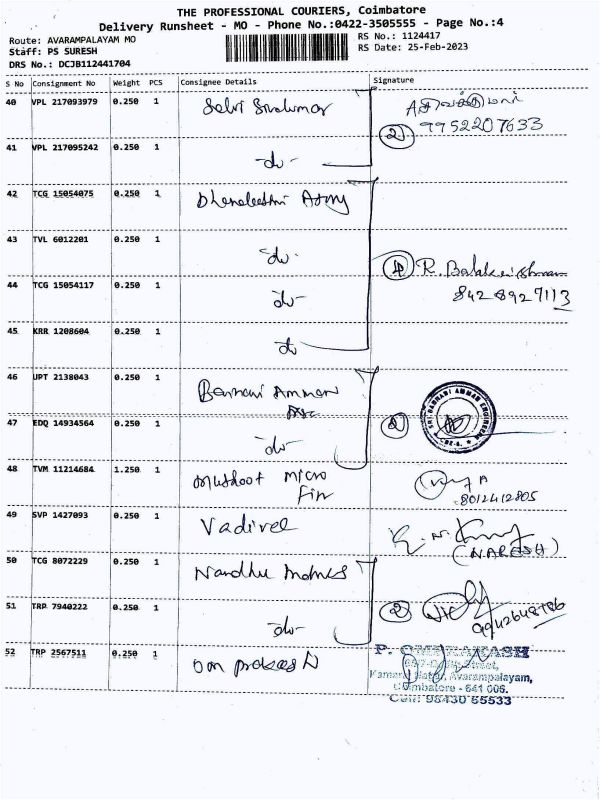 THE PROFESSIONAL COURIERS, Coimbatore
Delivery Runsheet - MO - Phone No.:0422-3505555 - Page No.:4
Route: AVARAMPALAYAM MO
RS No.: 1124417
Staff: PS SURESH
RS Date: 25-Feb-2023
DRS No.: DCJB112441704
S No Consignment No Weight PCS Consignee Details Signature
40 VPL 217093979 0.250 1 Selvi Sivakumar
9952207633
2
41 VPL 217095242 0.250 1 -do-
42 TCG 15054075 0.250 1 Dhanalakshmi
43 TVL 6012201 0.250 1 -do-
4 R. Balakrishnan
44 TCG 15054117 0.250 1 -do-
8428927113
45 KRR 1208604 0.250 1 do
46 UPT 2138043 0.250 1 Bannari Amman
SRI BANNARI AMMAN
47 EDQ 14934564 0.250 1 -do- 2
48 TVM 11214684 1.250 1 Muthoot Micro Fin
8012412805
49 SVP 1427093 0.250 1 Vadivel
(NARESH)
50 TCG 8072229 0.250 1 Nandhu Homes
51 TRP 7940222 0.250 1 -do- 2
52 TRP 2567511 0.250 1 Om prakash
P. OMPRAKASH
Avarampalayam,
Coimbatore - 641 006.
Cell: 98430 65533